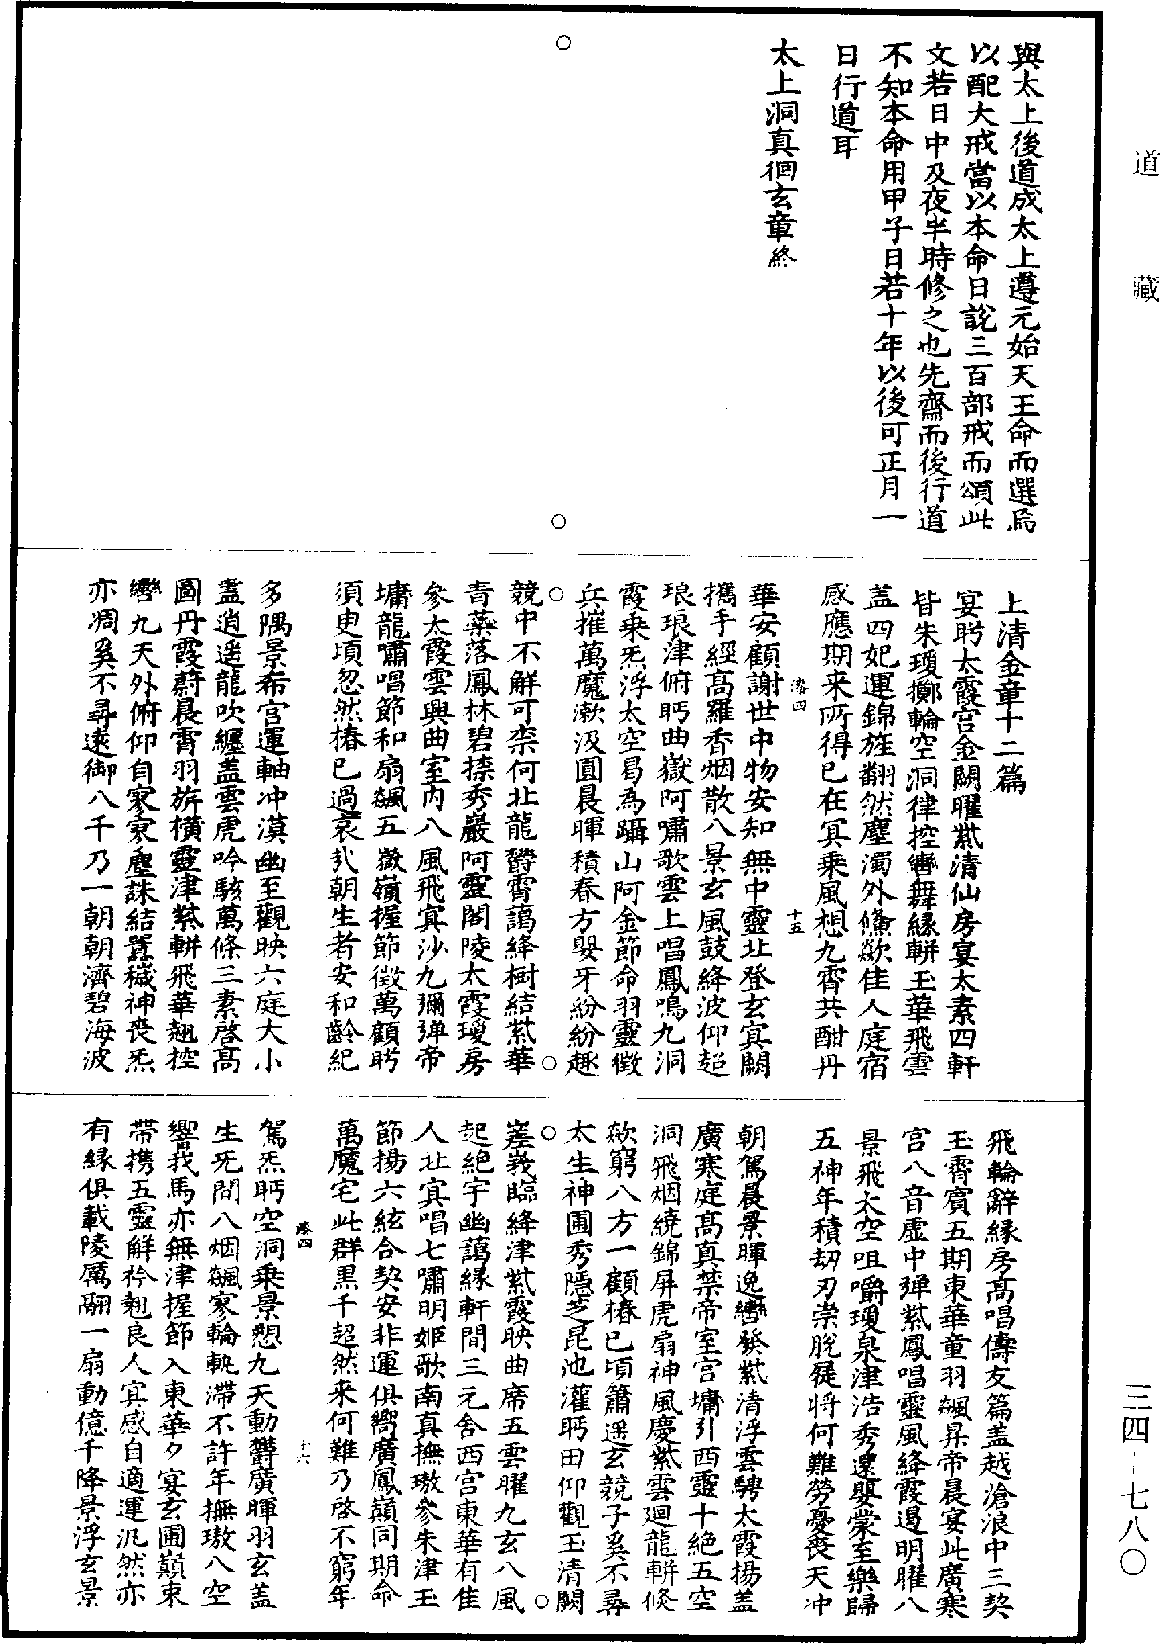 道藏
與太上後道成太上遵元始天王命而選焉
以配大戒當以本命日說三百部戒而頌此
文若日中及夜半時修之也先齋而後行道
不知本命用甲子日若十年以後可正月一
日行道耳
太上洞真徊玄章終
上清金章十二篇
宴眄太霞宮金闕曜紫清仙房宴太素四軒
皆朱瓊擲輪空洞津控轡舞緑軿玉華飛雲
盖四妃運錦旌翻然塵濁外儵歘佳人庭宿
感應期来所得已在冥乗風想九霄共酣丹
十五
華安顧謝世中物安知無中靈北登玄冥闕
攜手經髙羅香烟散八景玄風鼓絳波仰超
琅琅津俯眄曲嶽阿嘯歌雲上唱鳳鳴九洞
霞乗炁浮太空曷為躡山阿金節命羽靈徵
兵摧萬魔漱汲圓晨暉積春方嬰牙紛紛趣
競中不解可柰何北龍欝霄藹絳樹結紫華
青蘂落鳳林碧㮏秀巖阿靈閣陵太霞瓊房
參太霞雲興曲室内八風飛冥沙九彌弹帝
墉龍嘯唱節和扇飊五嶽嶺握節徵萬顧眄
須臾頃忽然椿已過哀㢤朝生者安和齡紀
多隅景希宮運軸冲漠幽至觀映六庭大小
盖逍遥龍吹纒盖雲虎吟駭萬條三素啓髙
圖丹霞蔚晨霄羽旂横靈津紫軿飛華翹控
轡九天外俯仰自寥寥塵誅結囂穢神喪炁
亦凋奚不尋遠御八千乃一朝朝濟碧海波
飛輪辭緑房髙唱儔友篇盖越滄浪中三契
玉霄賔五期東華童羽飊昇帝晨宴此廣寒
宮八音虚中弹紫鳳唱靈風絳霞邊明曜八
景飛太空咀嚼瓊泉津浩秀逮嬰䝉至樂歸
五神年積刧刃崇脫屣將何難勞憂喪天冲
朝駕晨景暉逸轡發紫清浮雲騁太霞揚盖
廣寒庭髙真禁帝室宮墉引西靈十絶五空
洞飛烟繞錦屏虎扇神風慶紫雲廻龍軿倐
歘窮八方一顧椿已頃簫遥玄競子奚不尋
太生神圃秀隱芝昆池灌眄田仰觀玉清闕
嵳峩臨絳津紫霞映曲席五雲曜九玄八風
起絶宇幽藹緑軒間三元舍西宮東華有佳
人北冥唱七嘯明姬歌南真撫璈參朱津玉
節揚六絃合契安非運俱嚮廣鳳巔同期命
萬魔宅此群黒千超然来何難乃啓不窮年
十六
駕炁眄空洞乗景想九天動欝廣暉羽玄盖
生旡間八烟飊寥輪軏滯不許年撫璈八空
響我馬亦無津握節入東華夕宴玄圃巔束
帶攜五靈解衿翹良人冥感自適運汎然亦
有緣俱載陵厲翮一扇動億千降景浮玄景
三四-七八〇